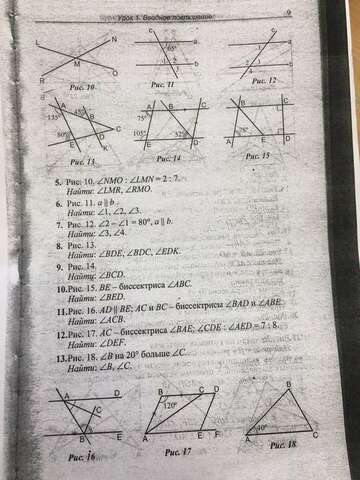 Урок 1. Вводное повторение
9
L N M R O
Рис. 10
c a b 65° 1 2 3
Рис. 11
c a b 1 2 3 4
Рис. 12
A B C D E K 135° 45° 80°
Рис. 13
A B C D E 75° 105° 32°
Рис. 14
A B C D E
Рис. 15
5. Рис. 10. ∠NMO : ∠LMN = 2 : 7.
Найти: ∠LMR, ∠RMO.
6. Рис. 11. a || b.
Найти: ∠1, ∠2, ∠3.
7. Рис. 12. ∠2 – ∠1 = 80°, a || b.
Найти: ∠3, ∠4.
8. Рис. 13.
Найти: ∠BDE, ∠BDC, ∠EDK.
9. Рис. 14.
Найти: ∠BCD.
10. Рис. 15. BE – биссектриса ∠ABC.
Найти: ∠BED.
11. Рис. 16. AD || BE; AC и BC – биссектрисы ∠BAD и ∠ABE.
Найти: ∠ACB.
12. Рис. 17. AC – биссектриса ∠BAE; ∠CDE : ∠AED = 7 : 8.
Найти: ∠DEF.
13. Рис. 18. ∠B на 20° больше ∠C.
Найти: ∠B, ∠C.
A D C B E
Рис. 16
B C D 120° A E F
Рис. 17
B A 40° C
Рис. 18